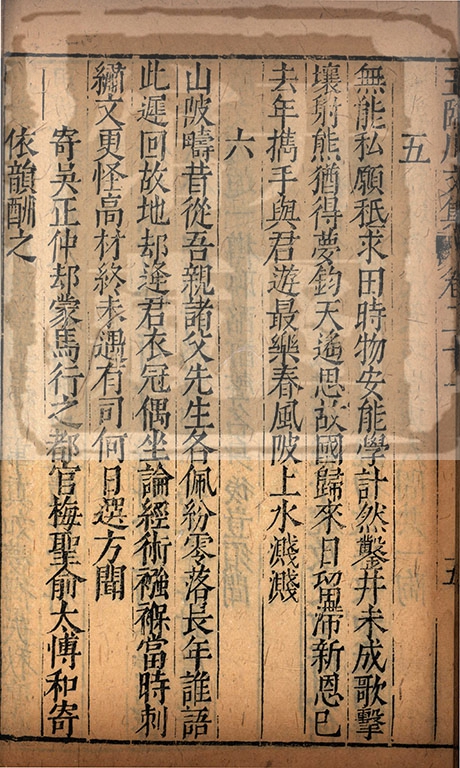 王臨川文集 卷二十 五
五
無能私願秖求田時物安能學計然鑿井未成歌擊
壤射熊猶得夢鈞天遙思故國歸來日留滯新恩已
去年携手與君遊最樂春風陂上水濺濺
六
山陂疇昔從吾親諸父先生各佩紛零落長年誰語
此遲回故地却逢君衣冠偶坐論經術襁褓當時刺
繡文更怪高材終未遇有司何日選方聞
寄吳正仲却蒙馬行之都官梅聖俞太博和寄
依韻酬之